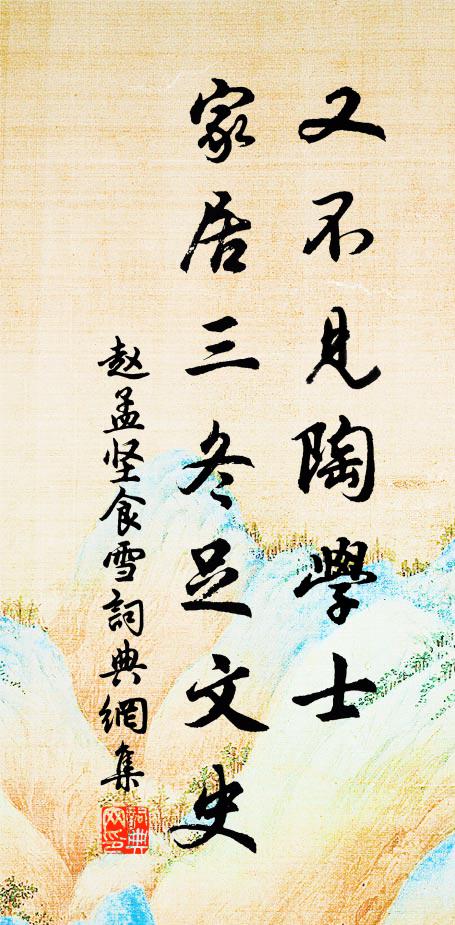 又不见陶學士
家居三冬足文史
赵孟坚食雪詞典網集
詞典